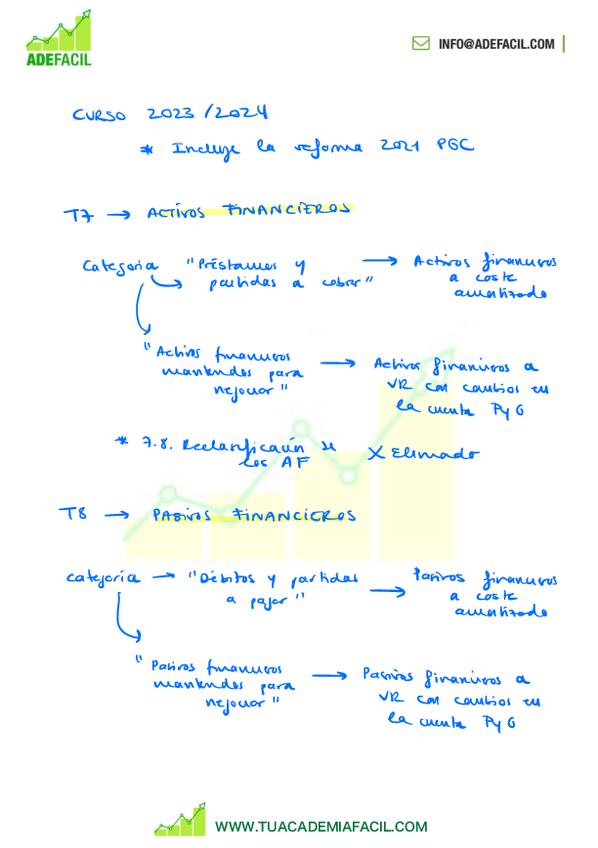 ADEFACIL
INFO@ADEFACIL.COM
CURSO 2023/2024
* Incluye la reforma 2021 PGC
T7 → ACTIVOS FINANCIEROS
Categoría "Préstamos y partidas a cobrar" → Activos financieros a coste amortizado
"Activos financieros mantenidos para negociar" → Activos financieros a VR con cambios en la cuenta PyG
* 7.8. Reclasificación de los AF X Eliminado
T8 → PASIVOS FINANCIEROS
Categoría → "Débitos y partidas a pagar" → Pasivos financieros a coste amortizado
"Pasivos financieros mantenidos para negociar" → Pasivos financieros a VR con cambios en la cuenta PyG
WWW.TUACADEMIAFACIL.COM